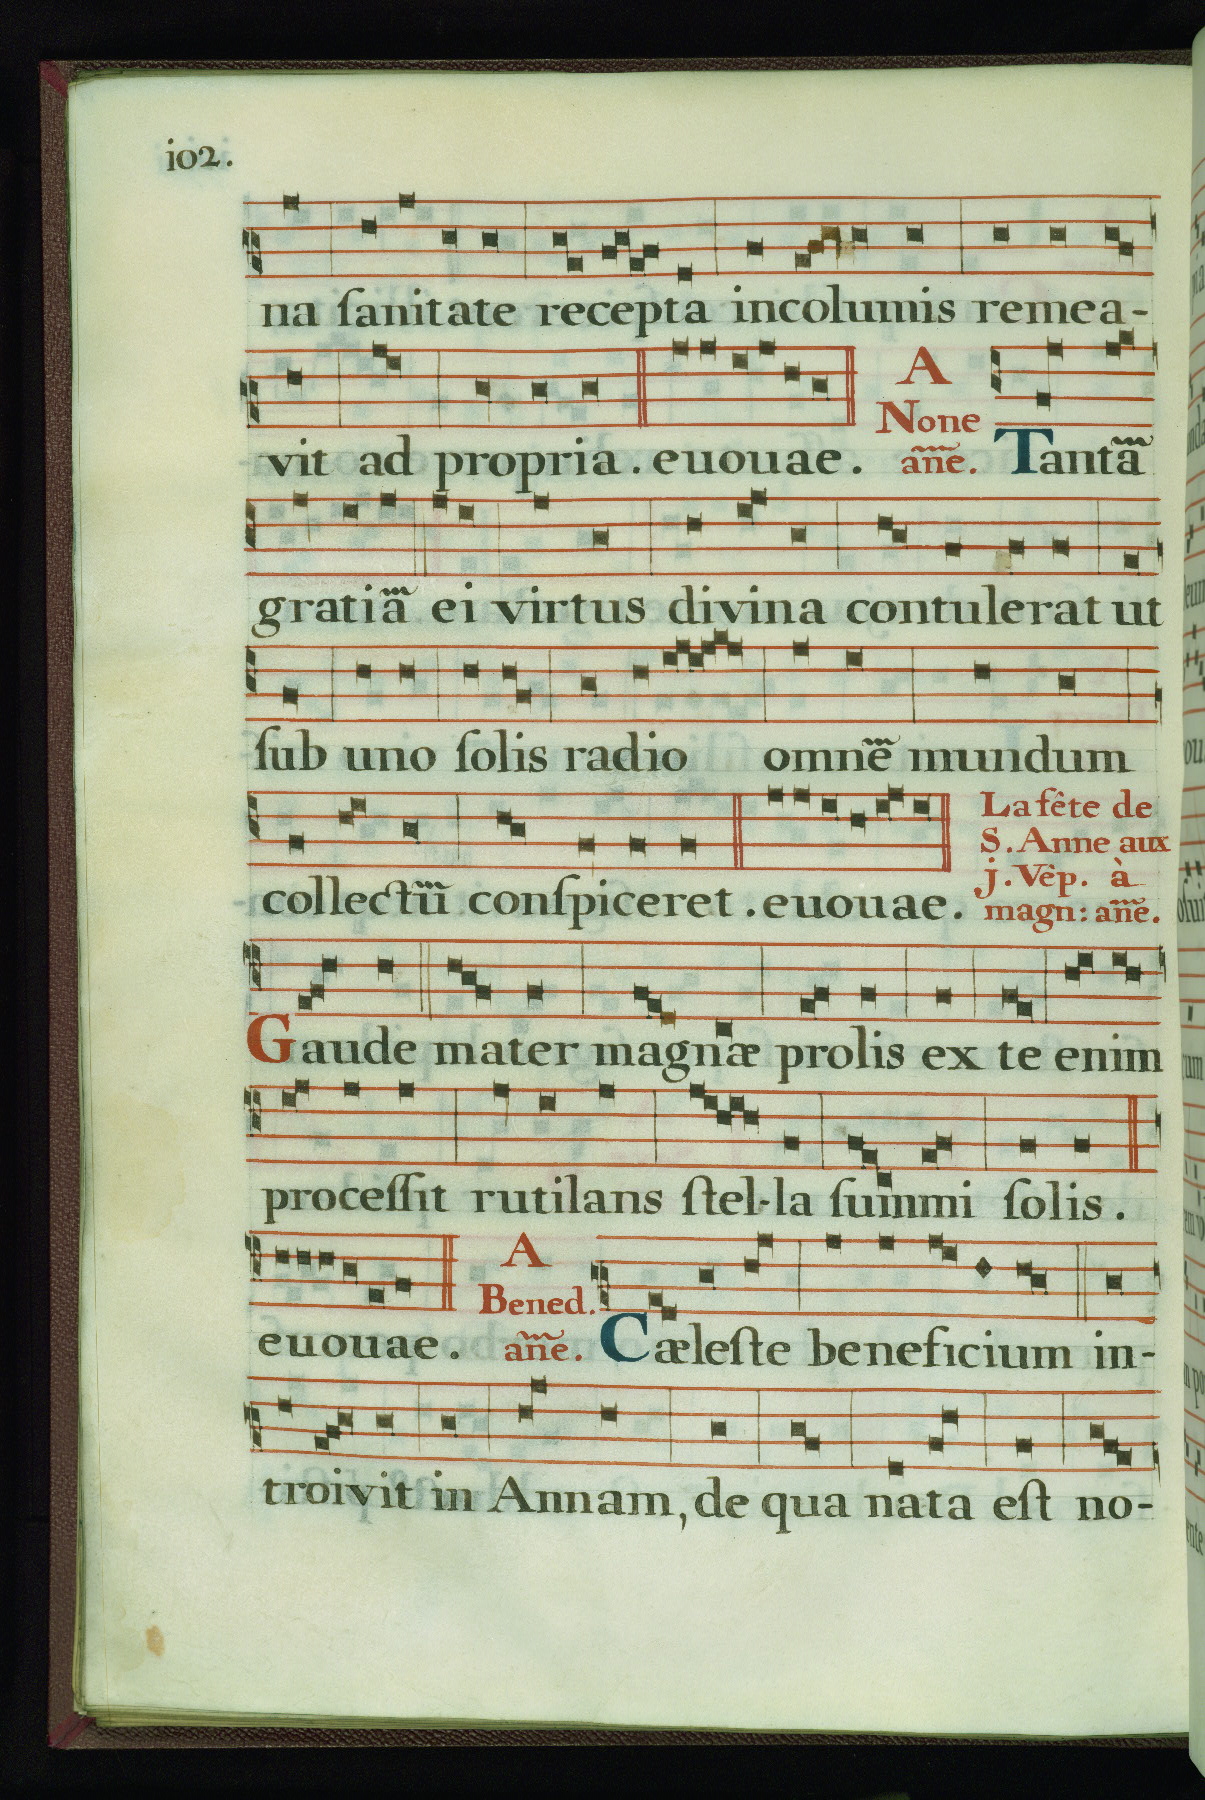 io2.
na ſanitate recepta incolumis remea-
vit ad propria. euouae. A None añe. Tantã
gratiã ei virtus divina contulerat ut
ſub uno ſolis radio omnẽ mundum
collectũ conſpiceret. euouae. La fête de S. Anne aux j. Vêp. à magn: añe.
Gaude mater magnæ prolis ex te enim
proceſſit rutilans ſtel-la ſummi ſolis.
euouae. A Bened. añe. Cæleſte beneficium in-
troivit in Annam, de qua nata eſt no-